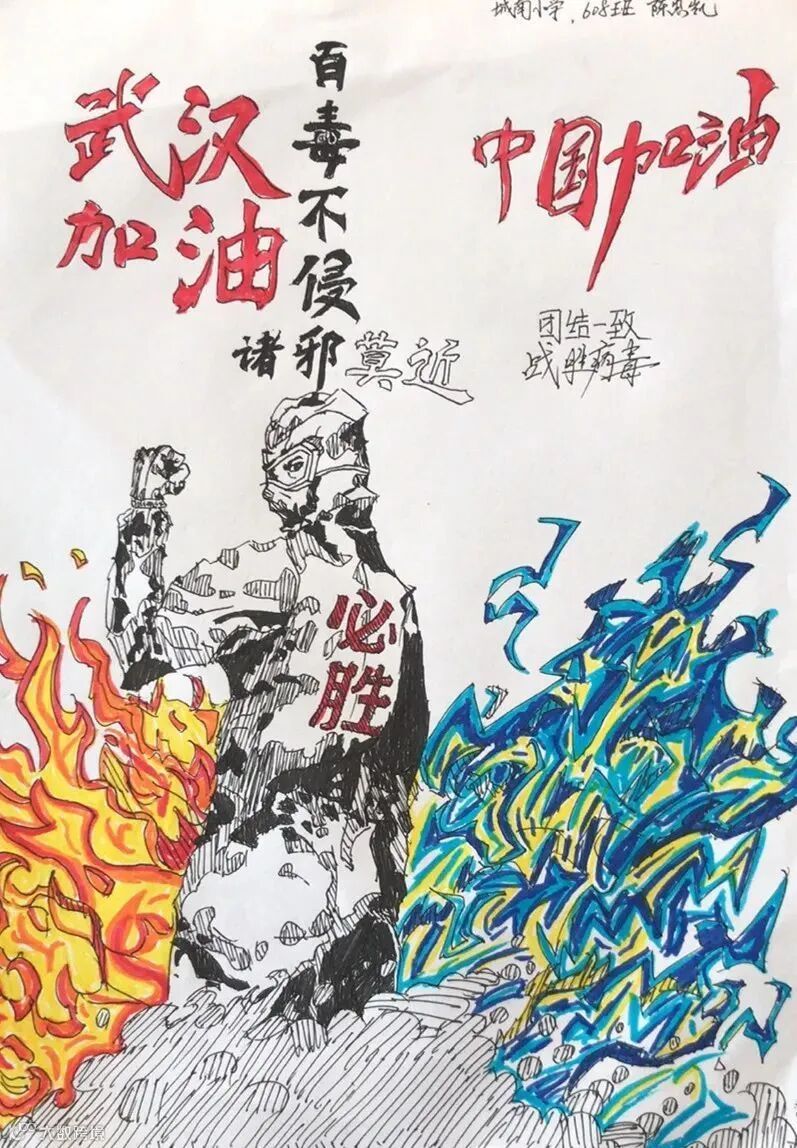 城南小学,608班 陈
武汉
加油
百毒不侵
诸邪莫近
中国加油
团结一致
战胜病毒
必胜
大数跨境